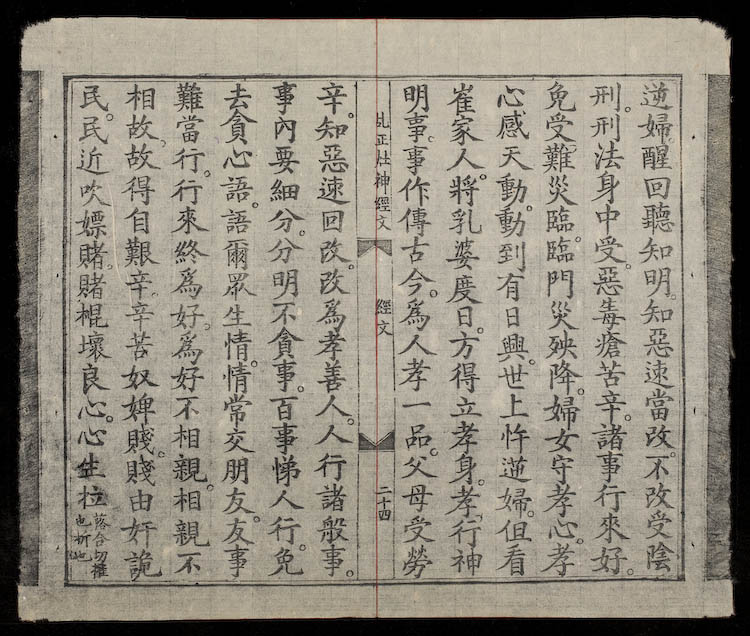 逆婦醒回聽知明。知惡速當改。不改受陰
刑。刑法身中受。惡毒瘡苦辛。諸事行來好。
免受難災臨。臨門災殃降。婦女守孝心。孝
心感天動。動到有日興。世上忤逆婦。但看
崔家人。將乳婆度日。方得立孝身。孝行神
明事。事作傳古今。爲人孝一品。父母受勞
乩正灶神經文
經文
二十四
辛。知惡速回改。改爲孝善人。人行諸般事。
事內要細分。分明不貪事。百事悌人行。免
去貪心語。語爾眾生情。情常交朋友。友事
難當行。行來終爲好。爲好不相親。相親不
相故。故得自艱辛。辛苦奴婢賤。賤由奸詭
民。民近吹嫖賭。賭棍壞良心。心生拉
落合切摧
也折也